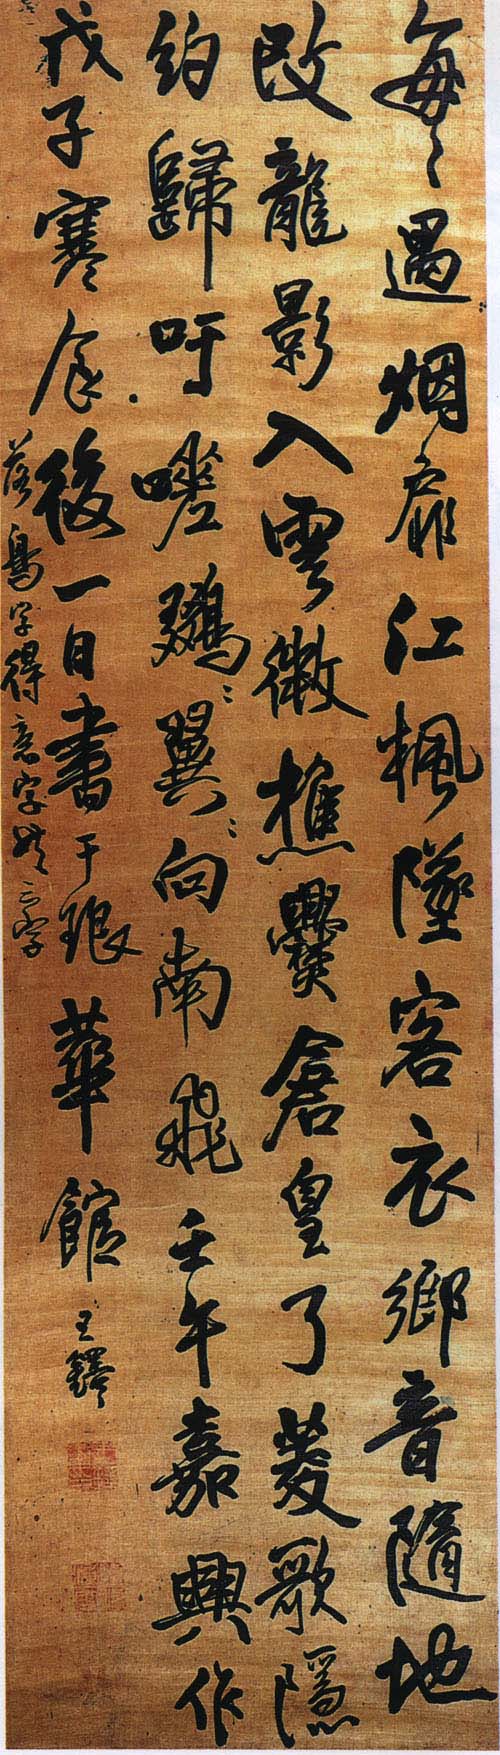 每々遇烟扉江楓墜客衣鄉音隨地
改龍影入雲微樵爨倉皇了菱歌隱
約歸吁嗟鵶々翼々向南飛壬午嘉興作
戊子寒食後一日書于琅華館王鐸
落烏字得意字共三字